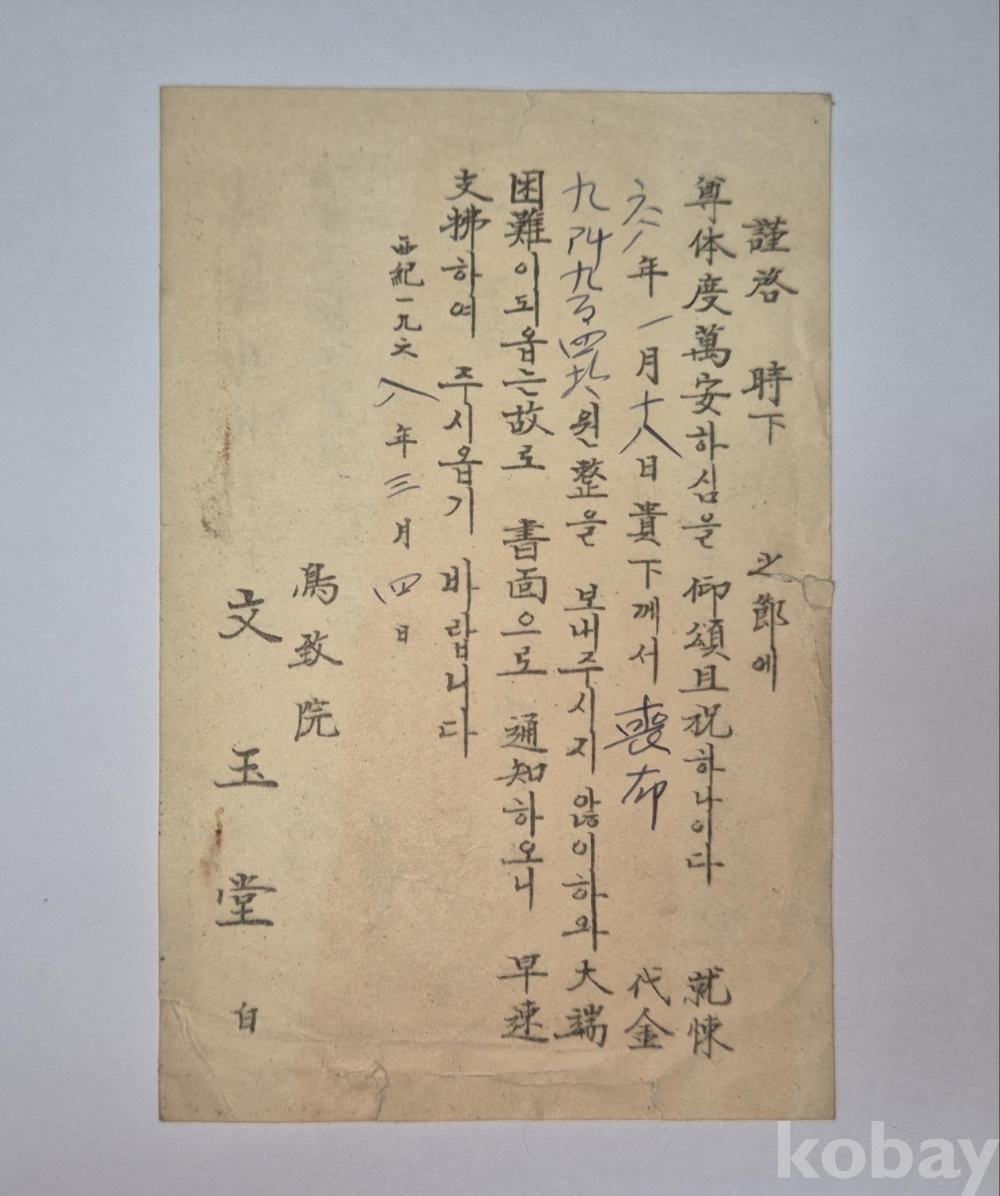 謹啓 時下 之節에
尊体度萬安하심을 仰頌且祝하나이다 就悚
六八年 一月十八日 貴下께서 喪布 代金
九阡九百四拾원整을 보내주시지 않이하와 大端
困難이되옵는故로 書面으로 通知하오니 早速
支拂하여 주시옵기 바랍니다
西紀一九六八年 三月 四日
鳥致院
文玉堂 白
kobay